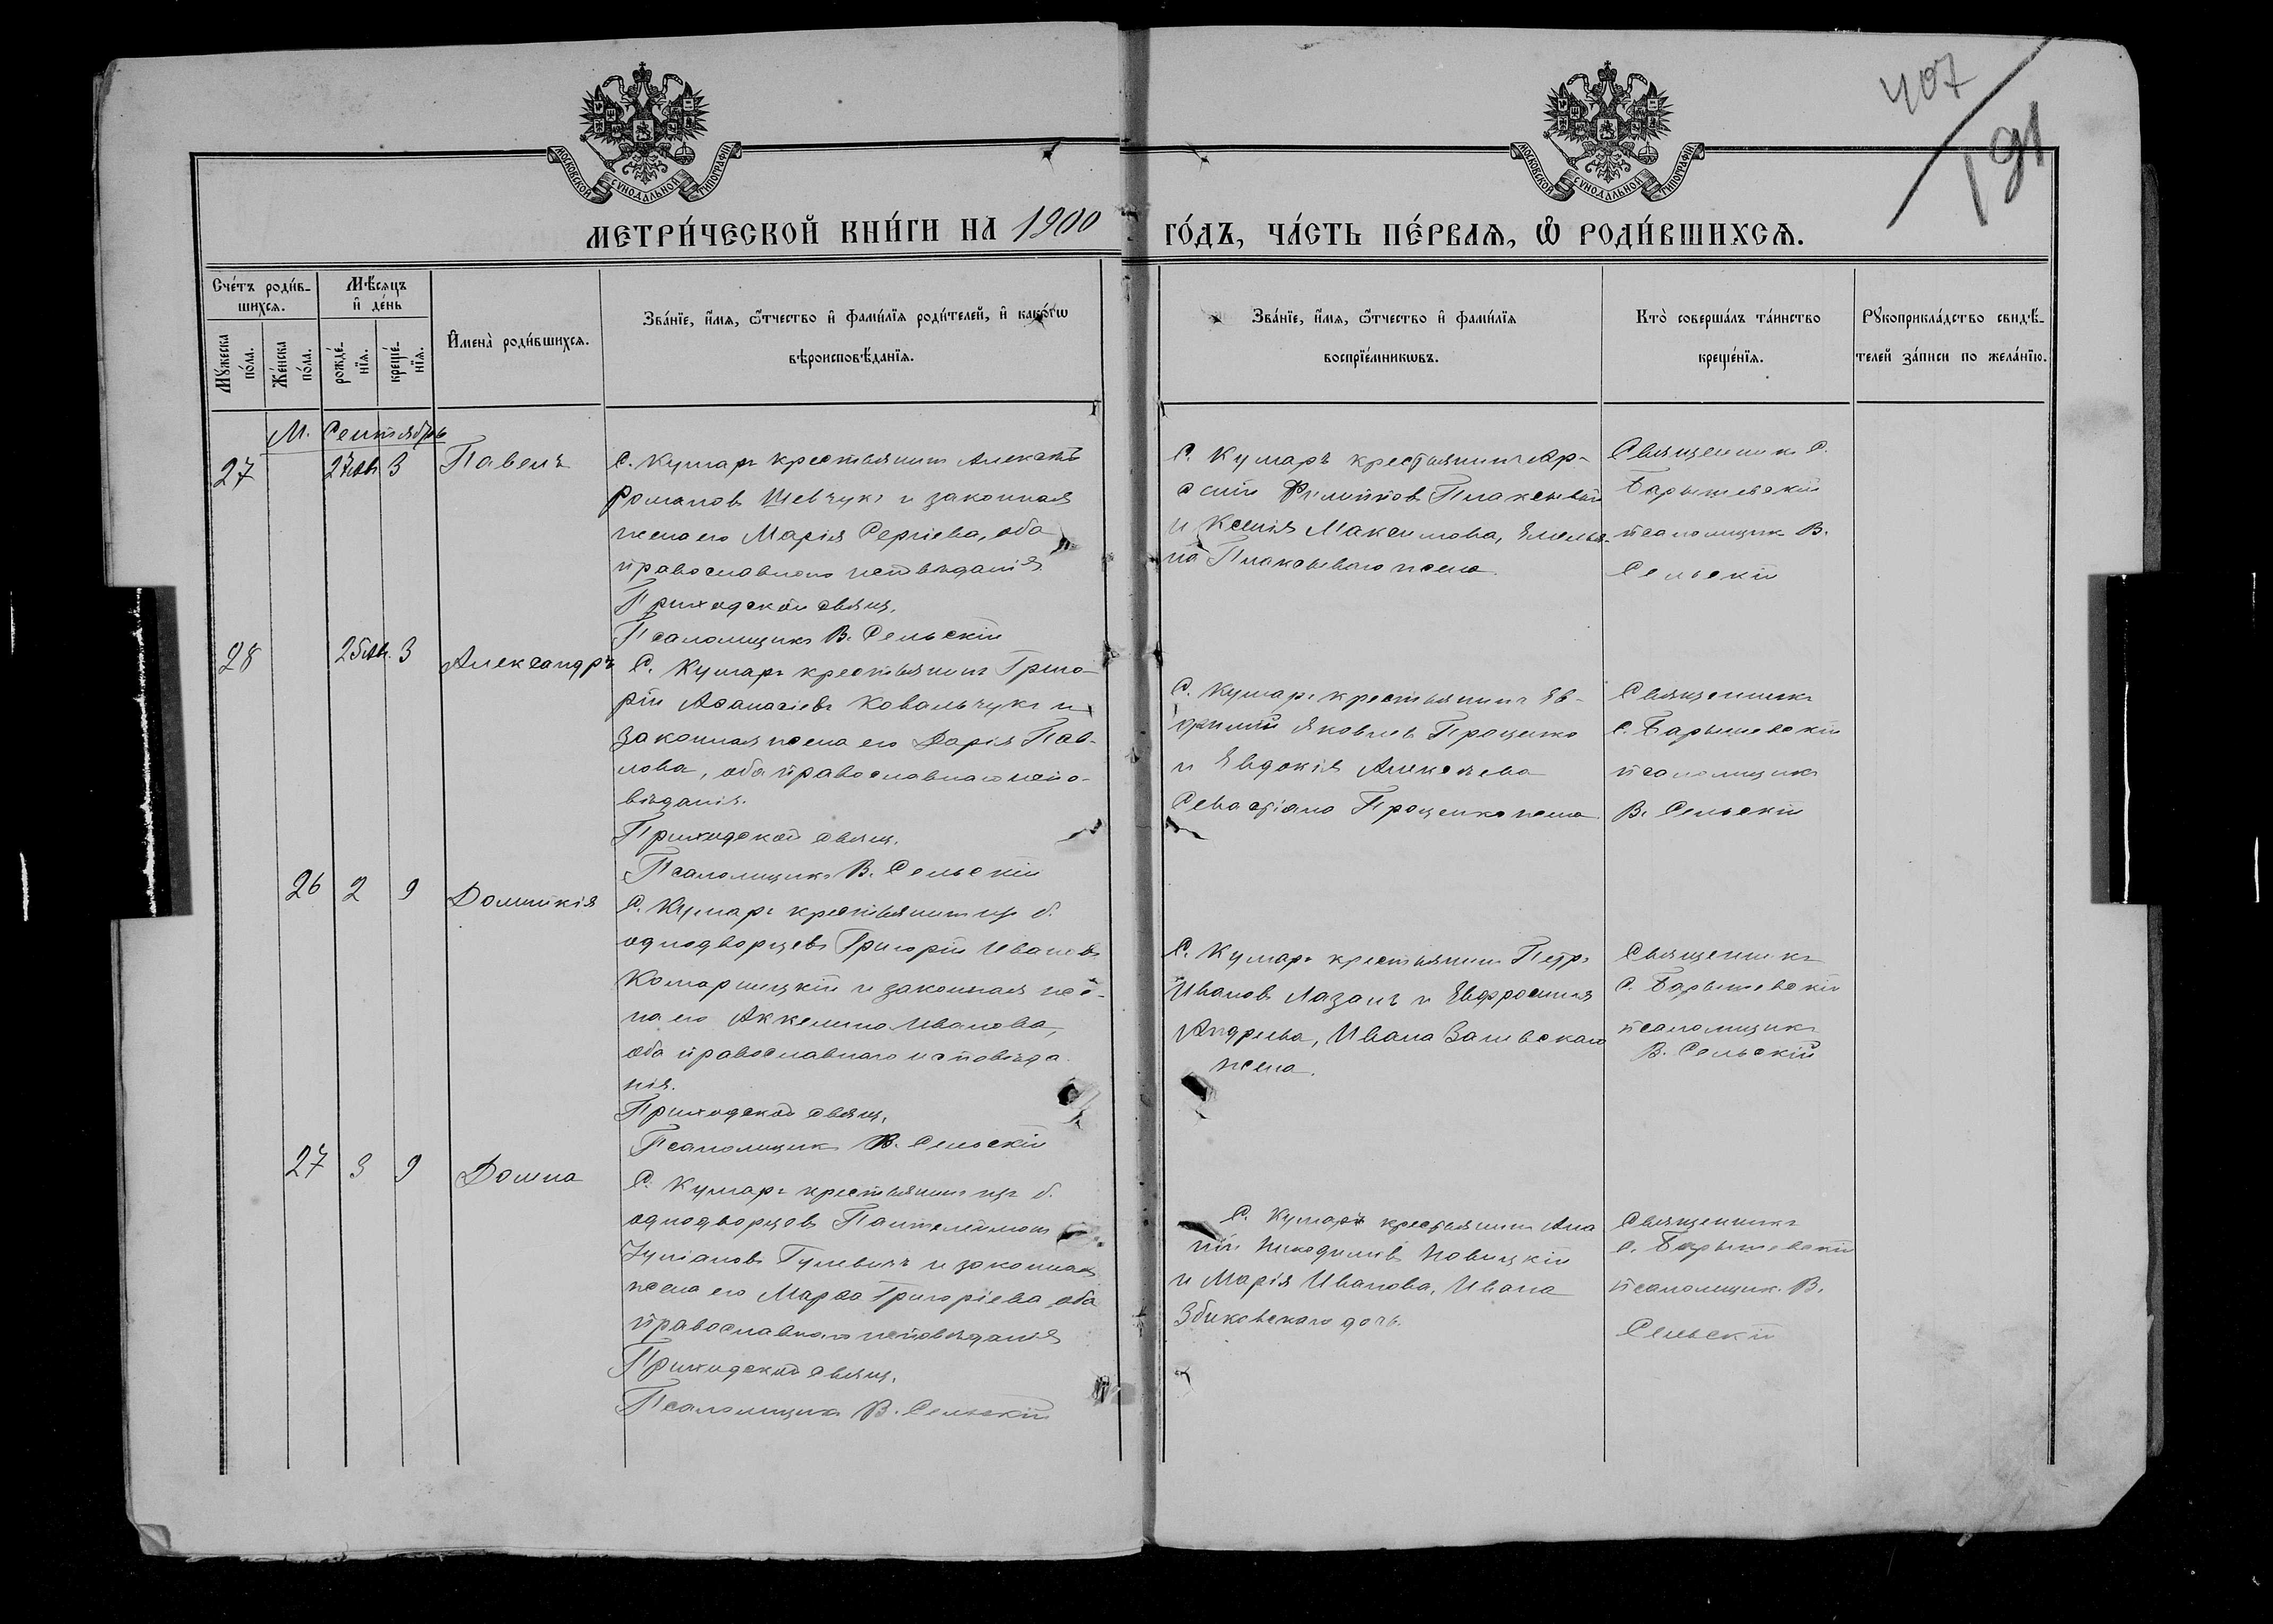 407
191
МОСКОВСКОЙ СУНОДАЛЬНОЙ ТИПОГРАФІИ
МОСКОВСКОЙ СУНОДАЛЬНОЙ ТИПОГРАФІИ
МЕТРИ́ЧЕСКОЙ КНИ́ГИ НА 1900 ГО́ДЪ, ЧА́СТЬ ПЕ́РВАѦ, Ѡ РОДИ́ВШИХСѦ.
Сче́тъ роди́в-
шихсѧ.
Мѣ́сѧцъ
и҆ де́нь
Мꙋ́жеска по́ла.
Же́нска по́ла.
рожде́-
нїѧ.
креще́-
нїѧ.
И҆мена̀ роди́вшихсѧ.
Зва́нїе, и҆́мѧ, ѻ҆́тчество и҆ фами́лїѧ роди́телей, и҆ како́гѡ
вѣроисповѣ́данїѧ.
Зва́нїе, и҆́мѧ, ѻ҆́тчество и҆ фами́лїѧ
воспрїе́мникѡвъ.
Кто̀ соверша́лъ та́инство
креще́нїѧ.
Рꙋкоприкла́дство свидѣ́-
телей за́писи по жела́нїю.
М. Сентябрь
27 27 Ав. 3 Павелъ
С. Кумаръ крестьянинъ Алексѣй
Романовъ Шевчукъ и законная
жена его Марія Сергіева, оба
православнаго исповѣданія
Приходской свящ.
Псаломщикъ В. Сельскій
С. Кумаръ крестьянинъ Ар-
сеній Филиповъ Плаксывый
и Ксенія Максимова, Емелья-
на Плаксываго жена.
Священникъ С.
Барышевскій
псаломщикъ В.
Сельскій
28 25 Ав. 3 Александръ
С. Кумаръ крестьянинъ Григо-
рій Аѳанасіевъ Ковальчукъ и
законная жена его Дарія Пав-
лова, оба православнаго испо-
вѣданія.
Приходской свящ.
Псаломщикъ В. Сельскій
С. Кумаръ крестьянинъ Ев-
фимій Яковлевъ Проценко
и Евдокія Алексѣева
Севастіана Проценко жена.
Священникъ
С. Барышевскій
псаломщикъ
В. Сельскій
26 2 9 Домникія
С. Кумаръ крестьянинъ изъ б.
однодворцевъ Григорій Ивановъ
Комарницкій и законная же-
на его Аккелина Иванова,
оба православнаго исповѣда
нія.
Приходской свящ.
Псаломщикъ В. Сельскій
С. Кумаръ крестьянинъ Петръ
Ивановъ Лазанъ и Евфросинія
Андреева, Ивана Залевскаго
жена.
Священникъ
С. Барышевскій
псаломщикъ
В. Сельскій
27 3 9 Домна
С. Кумаръ крестьянинъ изъ б.
однодворцевъ Пантелеимонъ
Іуліановъ Гулевичъ и законная
жена его Марѳа Григоріева оба
православнаго исповѣданія
Приходской свящ.
Псаломщикъ В. Сельскій
С. Кумаръ крестьянинъ Ана
ній Никодимовъ Новицкій
и Марія Иванова, Ивана
Збиковскаго дочь.
Священникъ
С. Барышевскій
псаломщикъ В.
Сельскій